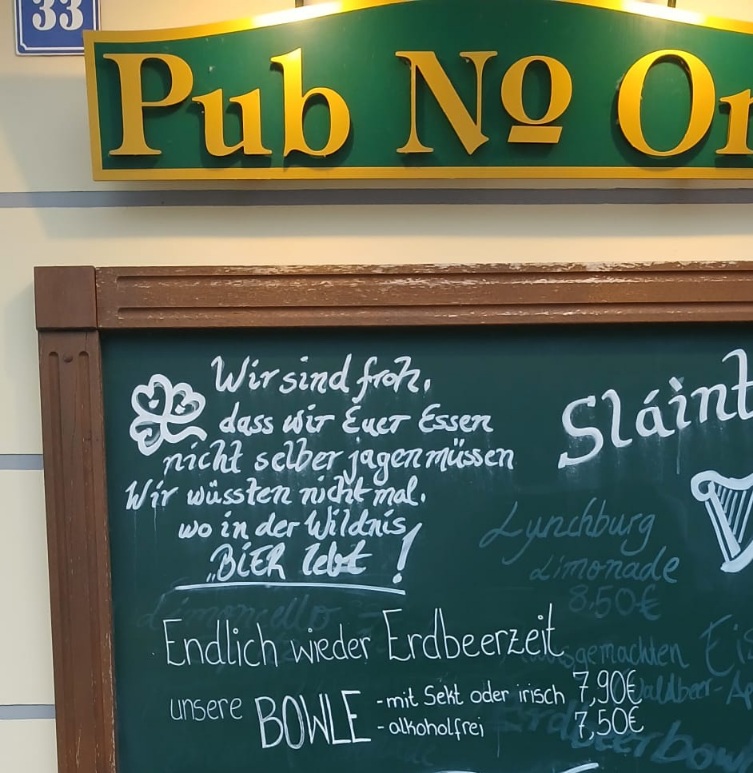 33
Pub No
Wir sind froh,
dass wir Euer Essen
nicht selber jagen müssen
Wir wüssten nicht mal,
wo in der Wildnis
„BiER lebt !
Sláint
Lynchburg
Limonade
8,50€
Limoncello
Endlich wieder Erdbeerzeit
unsere BOWLE - mit Sekt oder irisch 7,90€
- alkoholfrei 7,50€